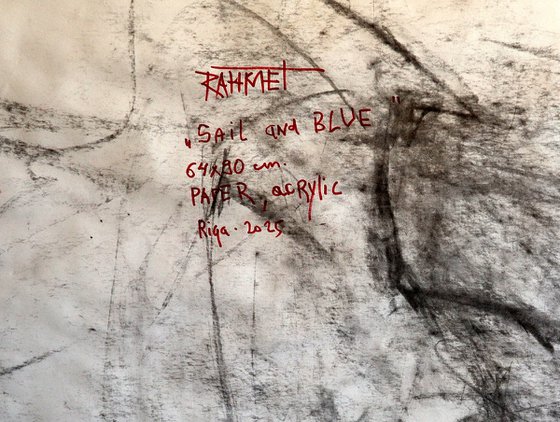 RAHMET
„SAIL and BLUE”
64x90 cm.
PAPER, acRylic
Riga. 2025